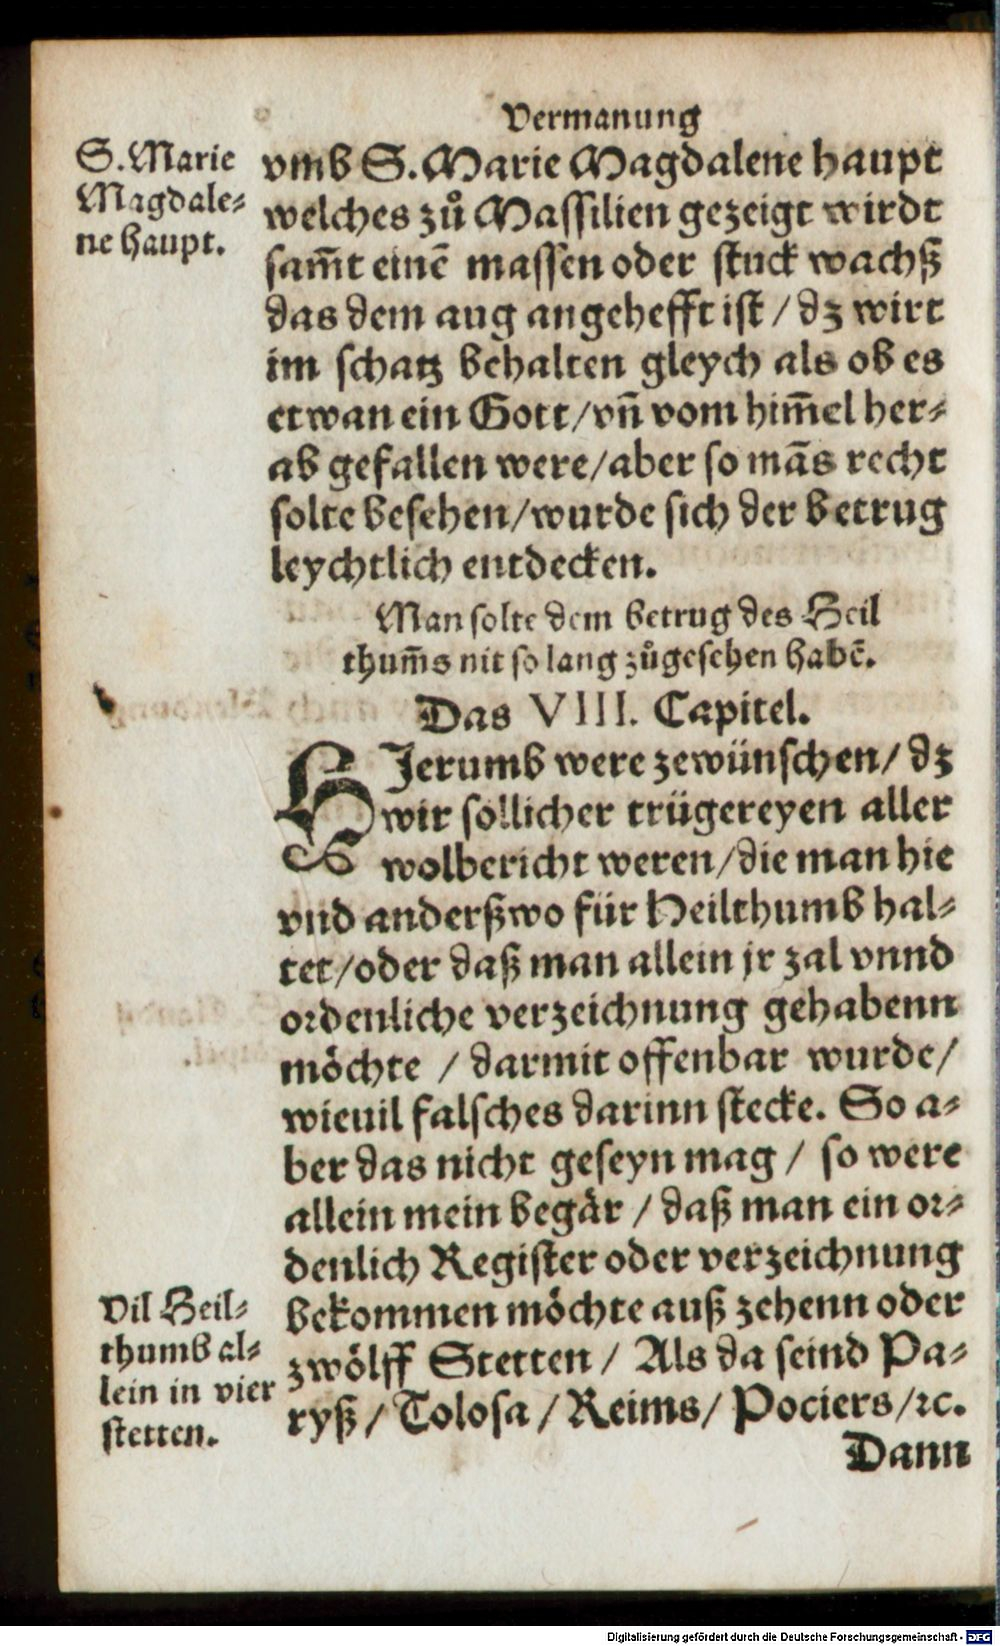 Vermanung
S. Marie
Magdale⸗
ne haupt.
vmb S. Marie Magdalene haupt
welches zů Massilien gezeigt wirdt
sam̃t einẽ massen oder stuck wachß
das dem aug angehefft ist / dz wirt
im schatz behalten gleych als ob es
etwan ein Gott / vñ vom him̃el her⸗
ab gefallen were / aber so mãs recht
solte besehen / wurde sich der betrug
leychtlich entdecken.
Man solte dem betrug des Heil
thum̃s nit so lang zůgesehen habẽ.
Das VIII. Capitel.
HJerumb were zewünschen / dz
wir söllicher trügereyen aller
wolbericht weren / die man hie
vnd anderßwo für Heilthumb hal⸗
tet / oder daß man allein jr zal vnnd
ordenliche verzeichnung gehabenn
möchte / darmit offenbar wurde /
wieuil falsches darinn stecke. So a⸗
ber das nicht geseyn mag / so were
allein mein begär / daß man ein or⸗
denlich Register oder verzeichnung
bekommen möchte auß zehenn oder
zwölff Stetten / Als da seind Pa⸗
ryß / Tolosa / Reims / Pociers / ꝛc.
Vil Heil⸗
thumb al⸗
lein in vier
stetten.
Dann
Digitalisierung gefördert durch die Deutsche Forschungsgemeinschaft - DFG